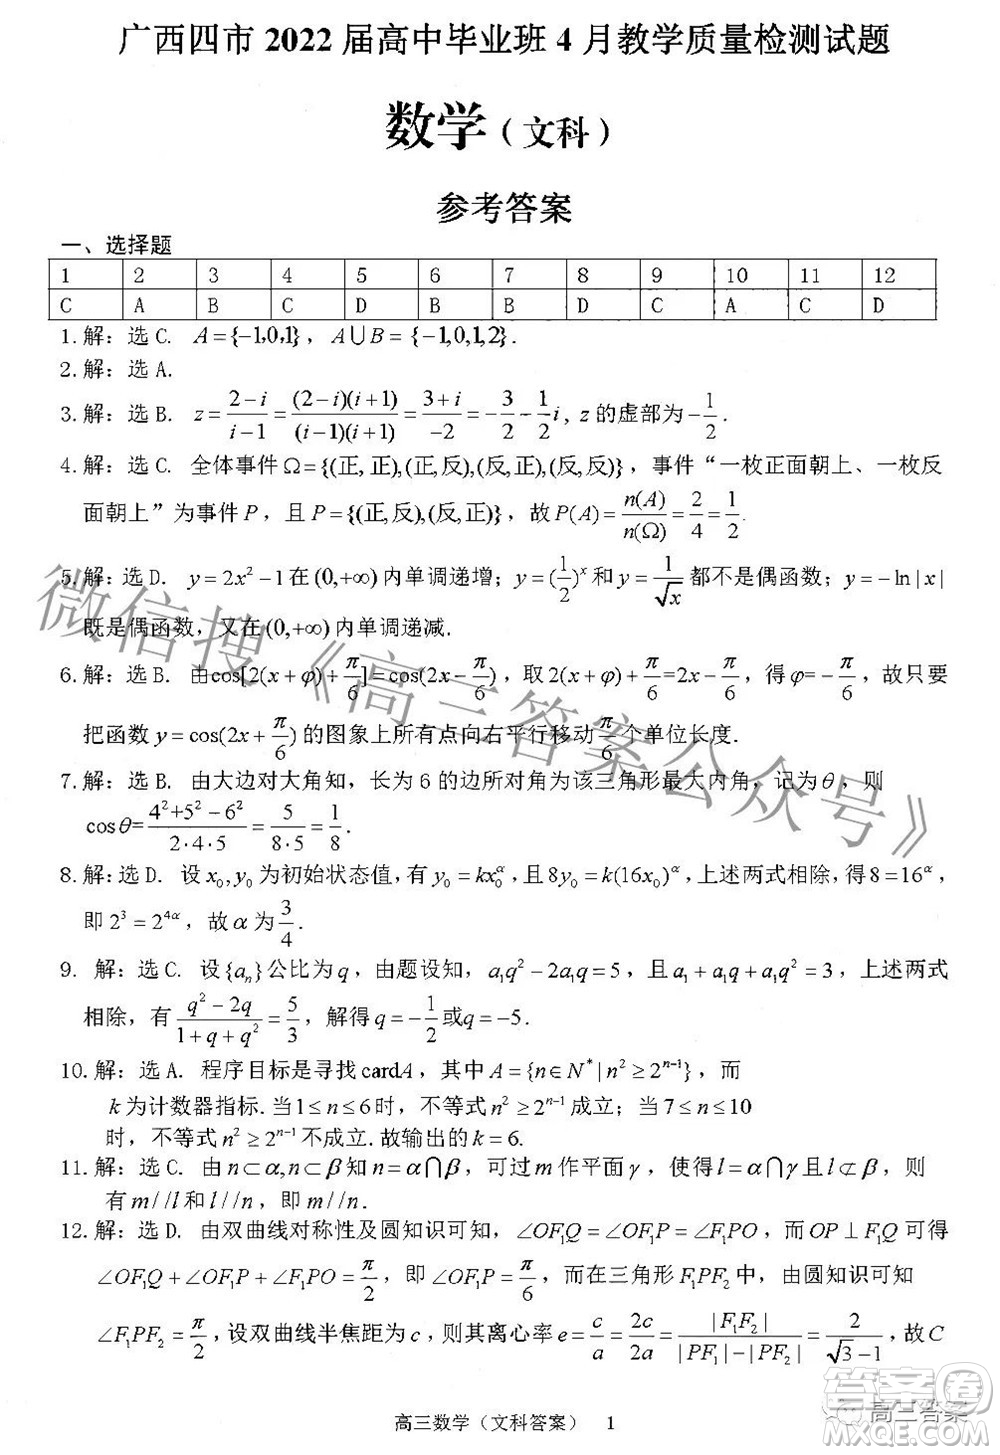 广西四市 2022 届高中毕业班 4 月教学质量检测试题
数学（文科）
参考答案
一、选择题
1 2 3 4 5 6 7 8 9 10 11 12
C A B C D B B D C A C D
1.解：选C. A={-1,0,1}，A⋃B={-1,0,1,2}.
2.解：选A.
3.解：选B. z=\frac{2-i}{i-1}=\frac{(2-i)(i+1)}{(i-1)(i+1)}=\frac{3+i}{-2}=-\frac{3}{2}-\frac{1}{2}i, z的虚部为-\frac{1}{2}.
4.解：选C. 全体事件Ω={(正,正),(正,反),(反,反),(反,正)}，事件“一枚正面朝上、一枚反
面朝上”为事件P，且P={(正,反),(反,正)}，故P(A)=\frac{n(A)}{n(Ω)}=\frac{2}{4}=\frac{1}{2}.
5.解：选D. y=2x²-1在(0,+∞)内单调递增；y=(\frac{1}{2})^x和y=\frac{1}{\sqrt{x}}都不是偶函数；y=-ln|x|
既是偶函数，又在(0,+∞)内单调递减.
6.解：选B. 由cos[2(x+φ)+\frac{π}{6}]=cos(2x-\frac{π}{6})，取2(x+φ)+\frac{π}{6}=2x-\frac{π}{6}，得φ=-\frac{π}{6}，故只要
把函数y=cos(2x+\frac{π}{6})的图象上所有点向右平行移动\frac{π}{6}个单位长度.
7.解：选B. 由大边对大角知，长为6的边所对角为该三角形最大内角，记为θ，则
cosθ=\frac{4²+5²-6²}{2·4·5}=\frac{5}{8·5}=\frac{1}{8}.
8.解:选D. 设x₀,y₀为初始状态值,有y₀=kx₀^α，且8y₀=k(16x₀)^α,上述两式相除,得8=16^α，
即2³=2^{4α}，故α为\frac{3}{4}.
9. 解：选C. 设{aₙ}公比为q，由题设知，a₁q²-2a₁q=5，且a₁+a₁q+a₁q²=3，上述两式
相除，有\frac{q²-2q}{1+q+q²}=\frac{5}{3}，解得q=-\frac{1}{2}或q=-5.
10.解：选A. 程序目标是寻找cardA，其中A={n∈N*|n²≥2^{n-1}}，而
k为计数器指标.当1≤n≤6时，不等式n²≥2^{n-1}成立；当7≤n≤10
时，不等式n²≥2^{n-1}不成立.故输出的k=6.
11.解：选C. 由n⊂α,n⊂β知n=α⋂β，可过m作平面γ，使得l=α⋂γ且l⊄β，则
有m//l和l//n，即m//n.
12.解：选D. 由双曲线对称性及圆知识可知，∠OF₁Q=∠OF₁P=∠F₁PO，而OP⊥F₁Q可得
∠OF₁Q+∠OF₁P+∠F₁PO=\frac{π}{2}，即∠OF₁P=\frac{π}{6}，而在三角形F₁PF₂中，由圆知识知
∠F₁PF₂=\frac{π}{2},设双曲线半焦距为c,则其离心率e=\frac{c}{a}=\frac{2c}{2a}=\frac{|F₁F₂|}{|PF₁|-|PF₂|}=\frac{2}{\sqrt{3}-1},故C
高三数学（文科答案） 1
微信搜《高三答案公众号》
答案圈
高三答案